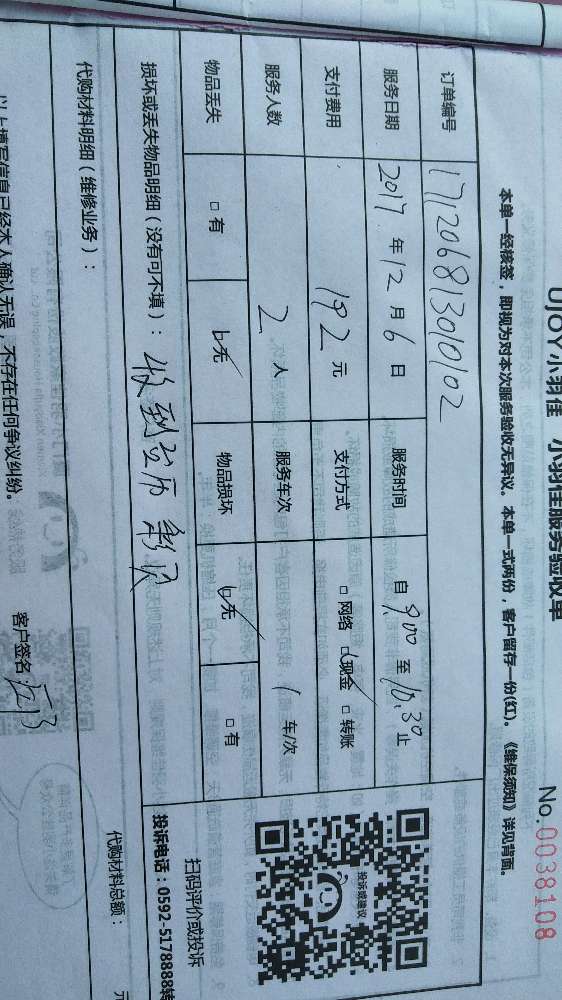 UJOY小羽佳 小羽佳服务验收单
No.0038108
本单一经核签，即视为对本次服务验收无异议。本单一式两份，客户留存一份(红)。《维保须知》详见背面。
订单编号 171206813010102
服务日期 2017年12月6日 服务时间 自9:00至10:30止
支付费用 192元 支付方式 □网络 □现金 □转账
服务人数 2人 服务车次 1车/次
物品丢失 □有 □无 物品损坏 □无 □有
投诉或建议
扫码评价或投诉
投诉电话：0592-5178888转
损坏或丢失物品明细（没有可不填）： 收到
代购材料明细（维修业务）：
代购材料总额： 元
以上填写信息已经本人确认无误，不存在任何争议纠纷。
客户签名: